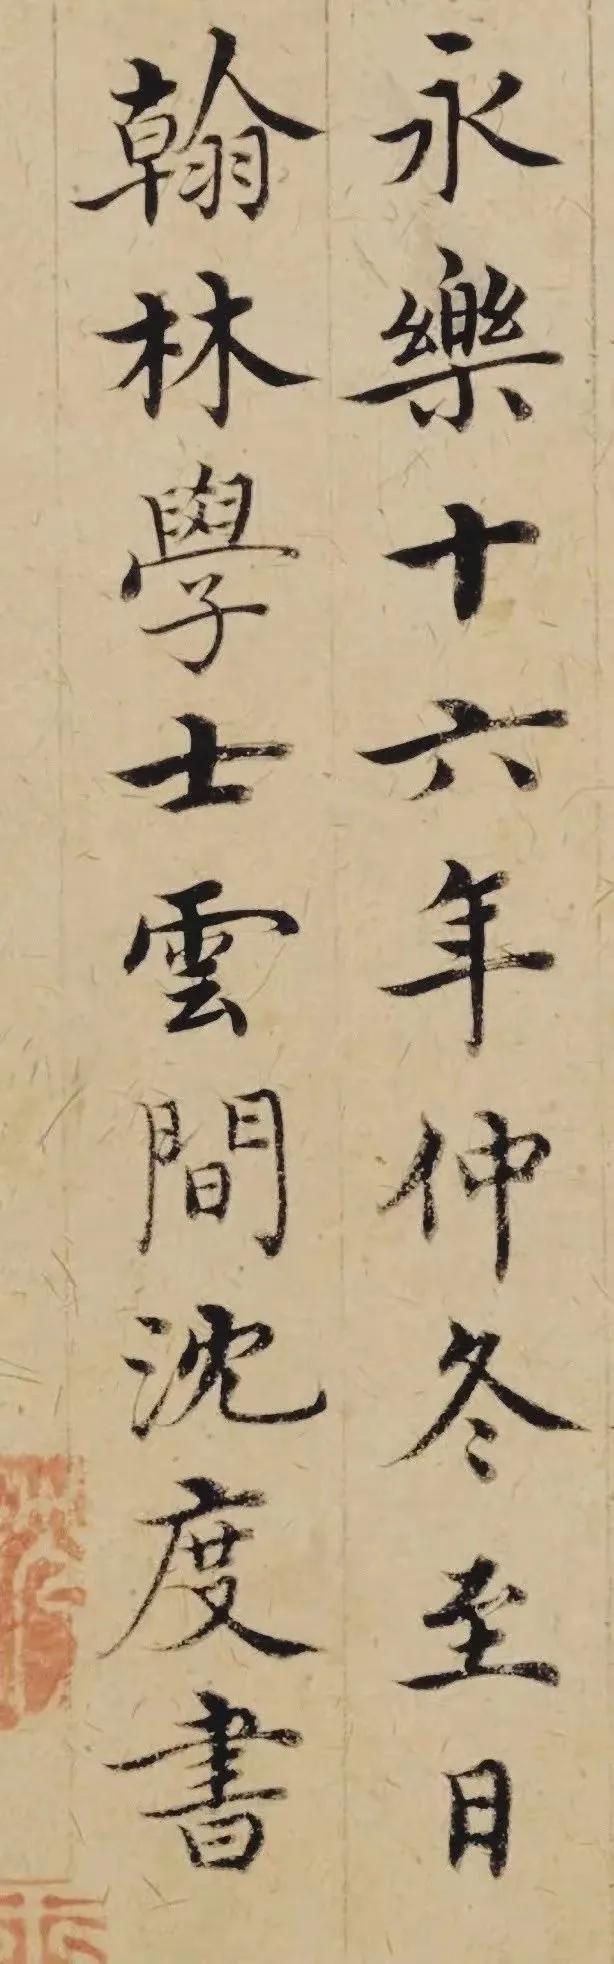 永樂十六年仲冬至日
翰林學士雲間沈度書